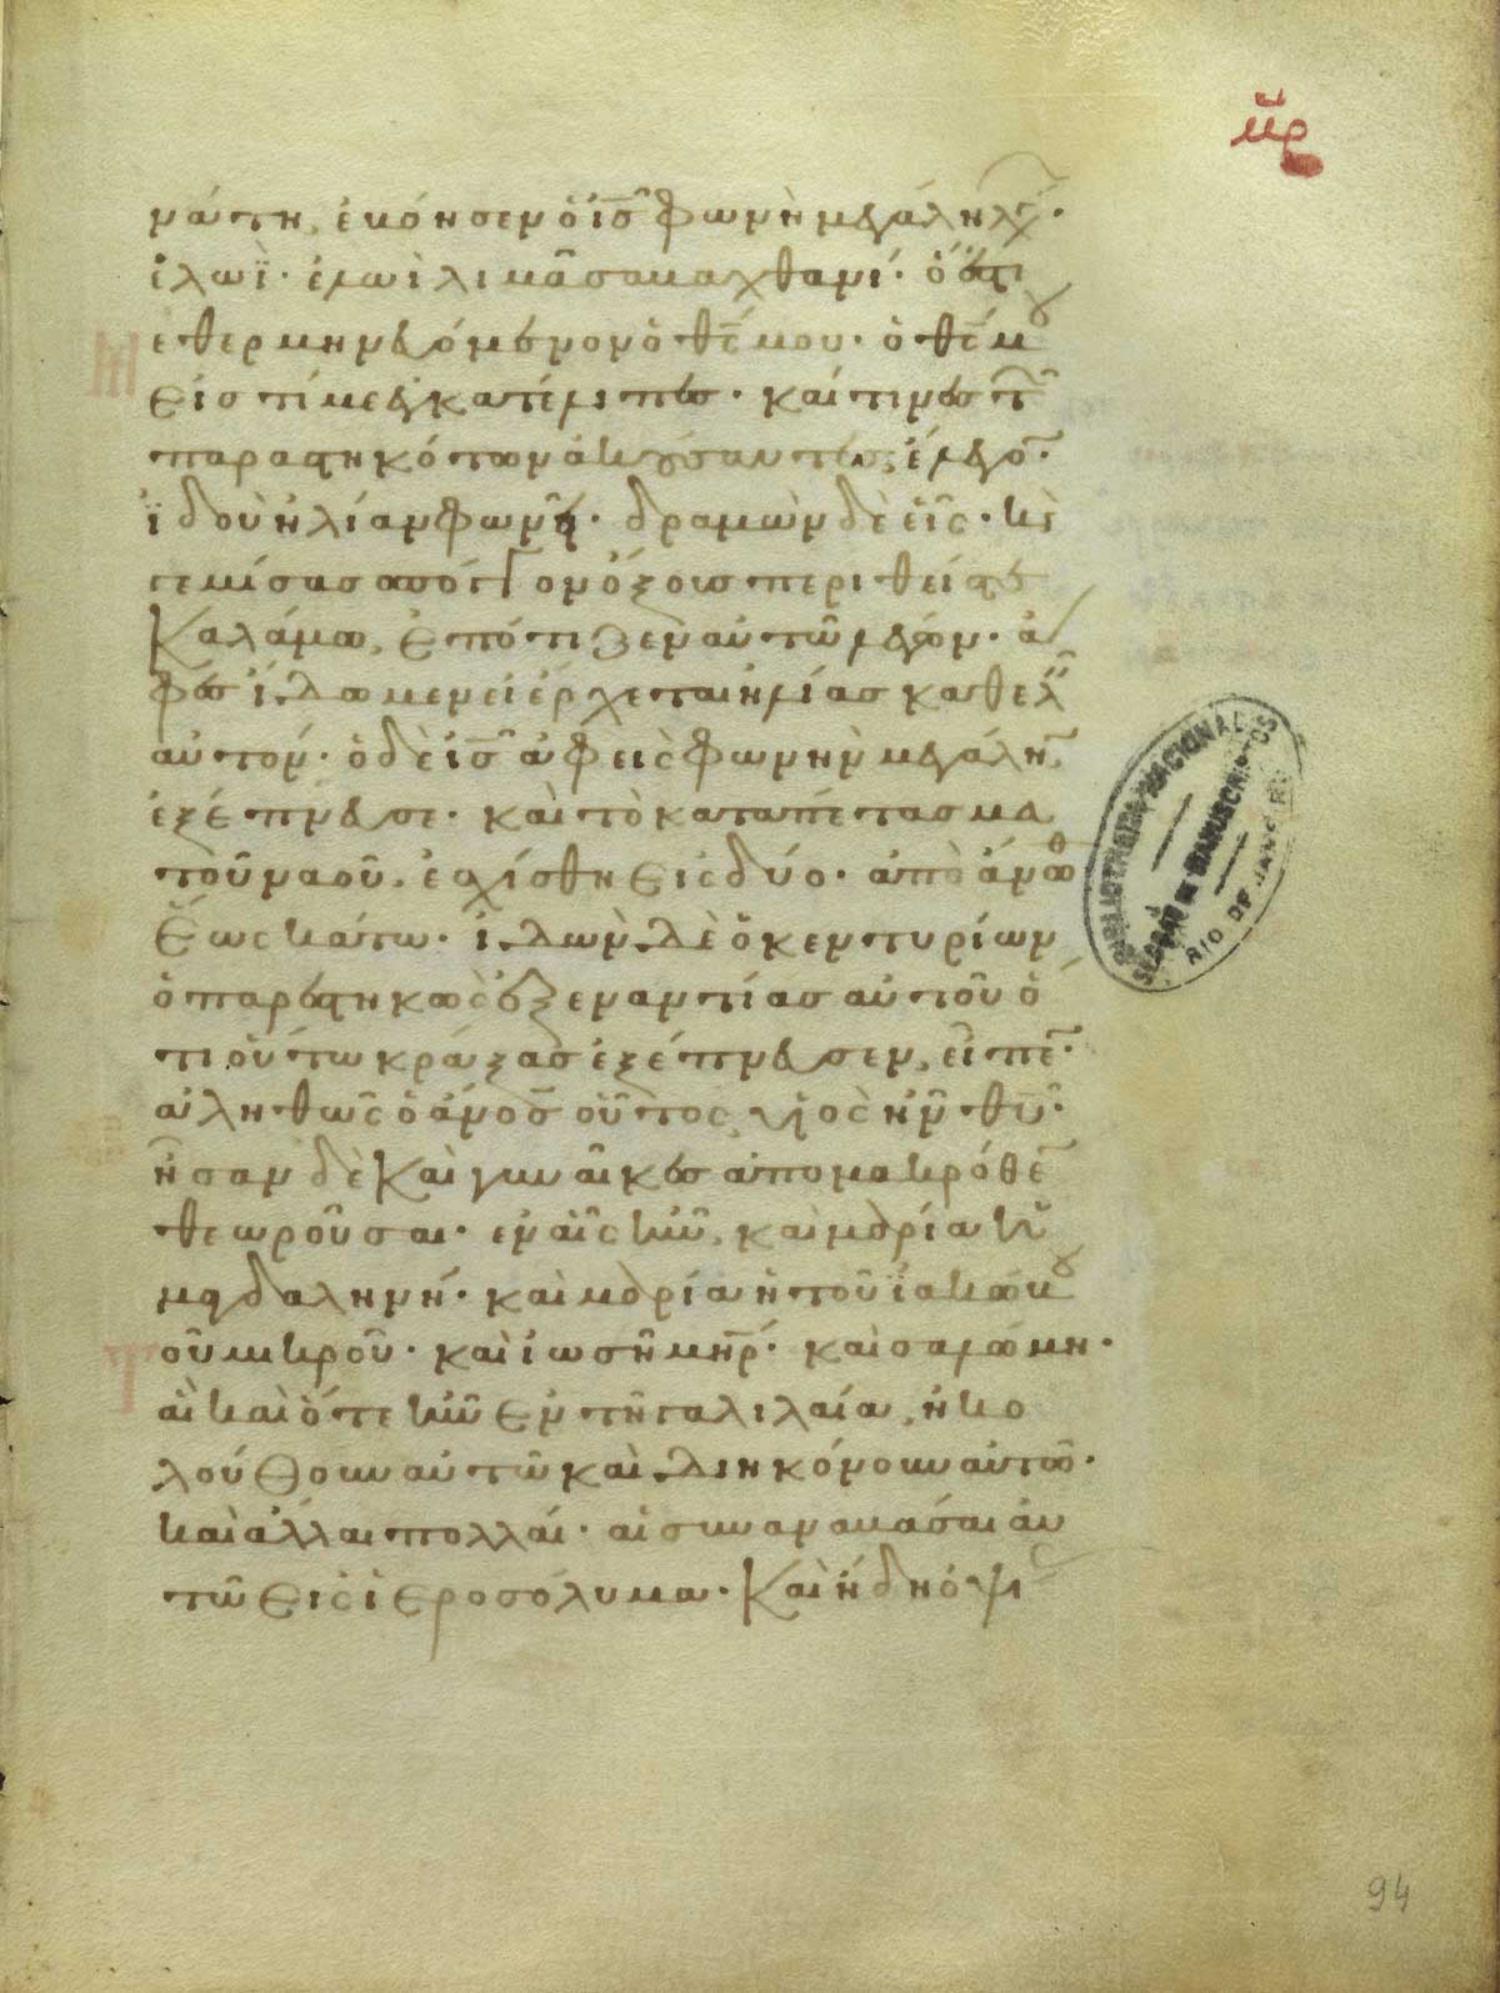 μρ
νάτη, ἐβόησεν ὁ ις φωνὴ μεγάλη λέγ·
ἐλωῒ· ἐλωῒ λιμᾶ σαβαχθανί· ὅ ἐστι
εθερμηνευόμενον ὁ θς μου· ὁ θς μου
εἰς τί με εγκατέλιπες· καί τινες τ
παρεστηκότων ἀκούσαντες, ἔλεγον·
ἰδοὺ ἠλίαν φωνεῖ· δραμὼν δὲ εἷς· κὲ
γεμίσας σπόγγον ὄξους περιθείς τε
καλάμω, ἐπότιζεν αὐτῶ λέγων· ἄ
φες ἴδωμεν εἰ ἔρχεται ἠλίας καθελ
αὐτόν· ὁ δὲ ις ἀφεὶς φωνὴν μεγάλην
ἐξέπνευσε· καὶ τὸ καταπέτασμα
τοῦ ναοῦ, ἐσχίσθη εἰς δύο· ἀπὸ ἄνωθ
ἕως κάτω· ἰδὼν δὲ ὁ κεντυρίων
ὁ παρεστηκὼς ἐξ εναντίας αὐτοῦ ὅ
τι οὕτω κράξας ἐξέπνευσεν, εἶπε·
ἀληθῶς ὁ ἄνος οὗτος, υἱὸς ἦν θυ·
ἦσαν δὲ καὶ γυναῖκες ἀπο μακρόθε
θεωροῦσαι· εν αἷς ἦν, καὶ μαρία ἡ
μαγδαληνή· καὶ μαρία ἡ τοῦ ἰακώβου
οῦ μικροῦ· καὶ ἰωσῆ μηρ· καὶ σαλώμη·
αἳ καὶ ὅτε ἦν ἐν τῆ γαλιλαία, ἠκο
λούθουν αὐτῶ καὶ διηκόνουν αὐτῶ·
καὶ ἄλλαι πολλαί· αἱ συναναβᾶσαι αὐ
τῶ εἰς ἱεροσόλυμα· Καὶ ἤδη ὀψί
BIBLIOTHECA NACIONAL
SECÇÃO DE MANUSCRIPTOS
RIO DE JANEIRO
94